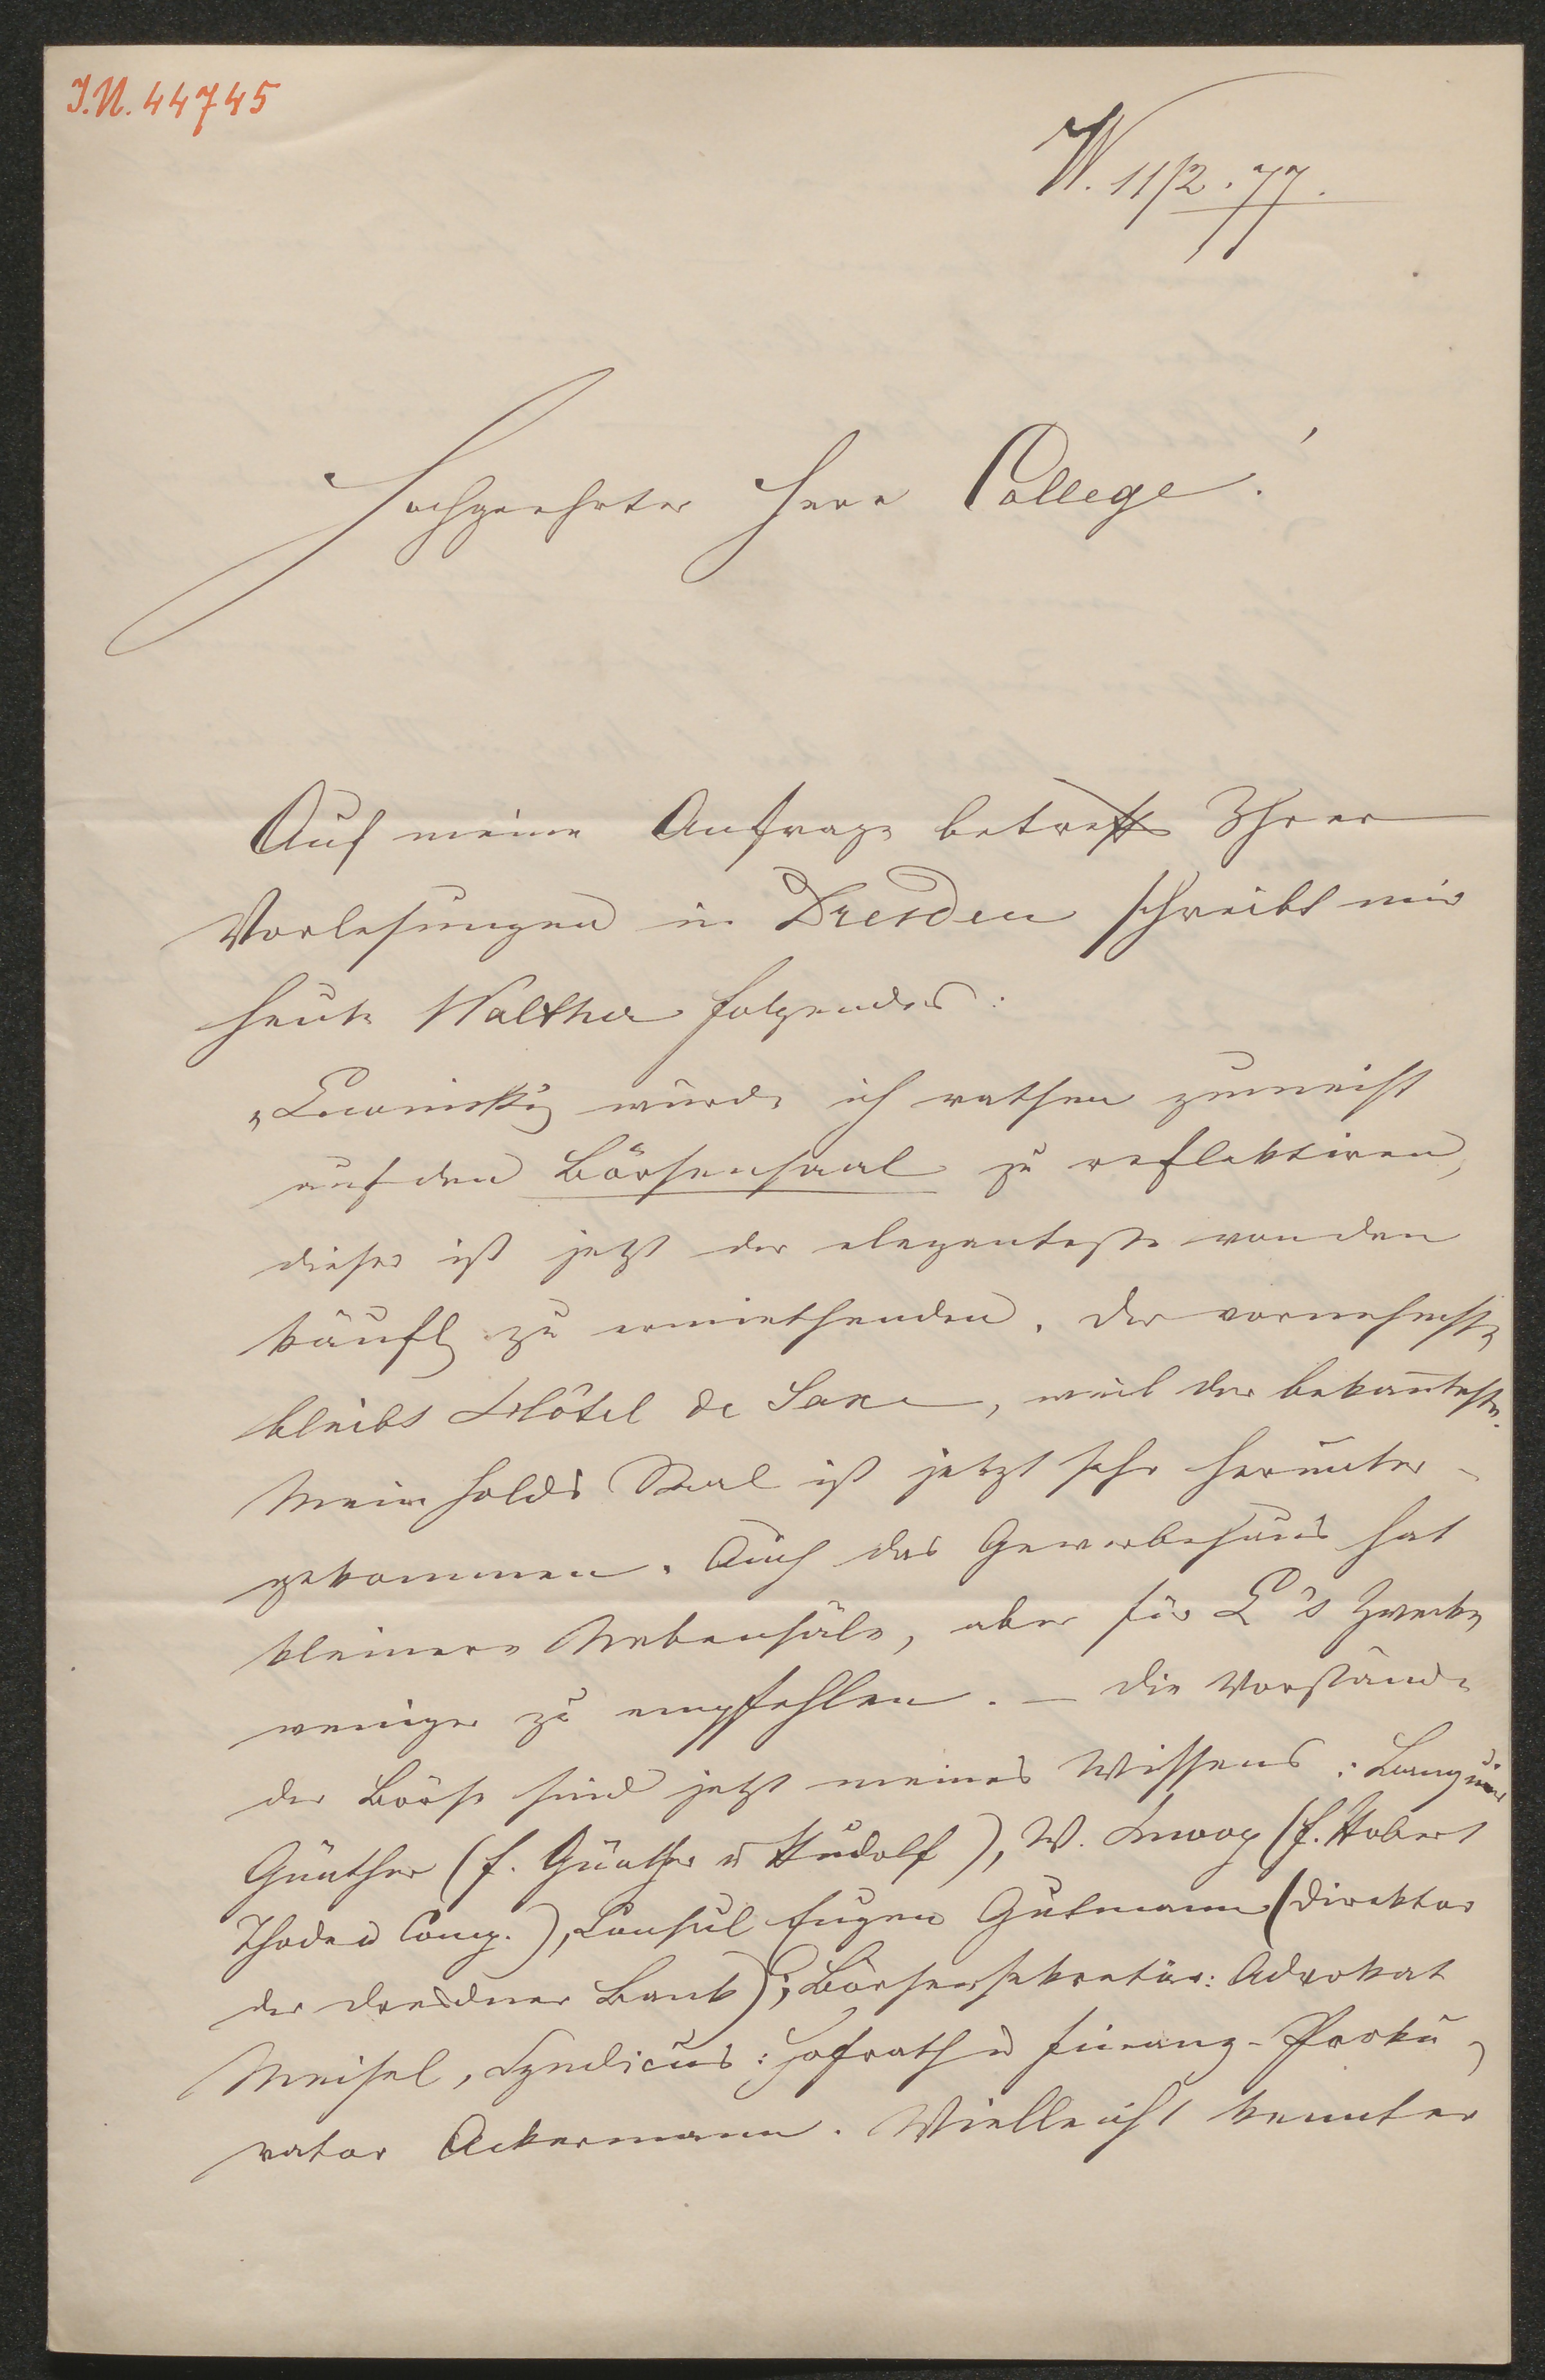 I.N. 44745
W. 11/2. 77.
Hochgeehrter Herr College!
Auf meine Anfrage betreffs Ihrer
Vorlesungen in Dresden schreibt mir
heute Walther folgendes:
„Lewinsky würde ich rathen zumeist
auf den Börsensaal zu reflektiren,
dieser ist jetzt der eleganteste von den
käufl. zu ermiethenden. Der vornehmste
bleibt Hôtel de Saxe, weil der bekannteste.
Meinholds Saal ist jetzt sehr herunter-
gekommen. Auch das Gewerbehaus hat
kleinere Nebensäle, aber für L's Zwecke
weniger zu empfehlen. – Die Vorstände
der Börse sind jetzt meines Wissens: Banquier
Günther (f. Günther u Rudolf), W. Knoop (f. Robert
Thode u Comp.), Consul Eugen Gutmann (Direktor
der Dresdner Bank); Börsensekretär: Advokat
Meisel, Syndicus: Hofrath u Finanz-Proku-
rator Ackermann. Vielleicht kennt er